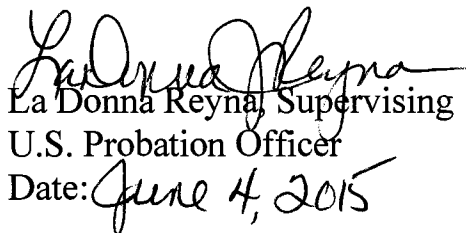 LaDonna J Reyna
La Donna Reyna, Supervising
U.S. Probation Officer
Date: June 4, 2015